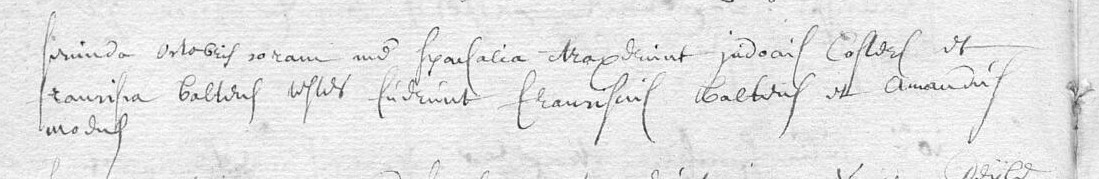 secunda octobris coram me sponsalia contraxerunt judocus Costers et
francisca baltens testes fuerunt franciscus baltens et Amandus